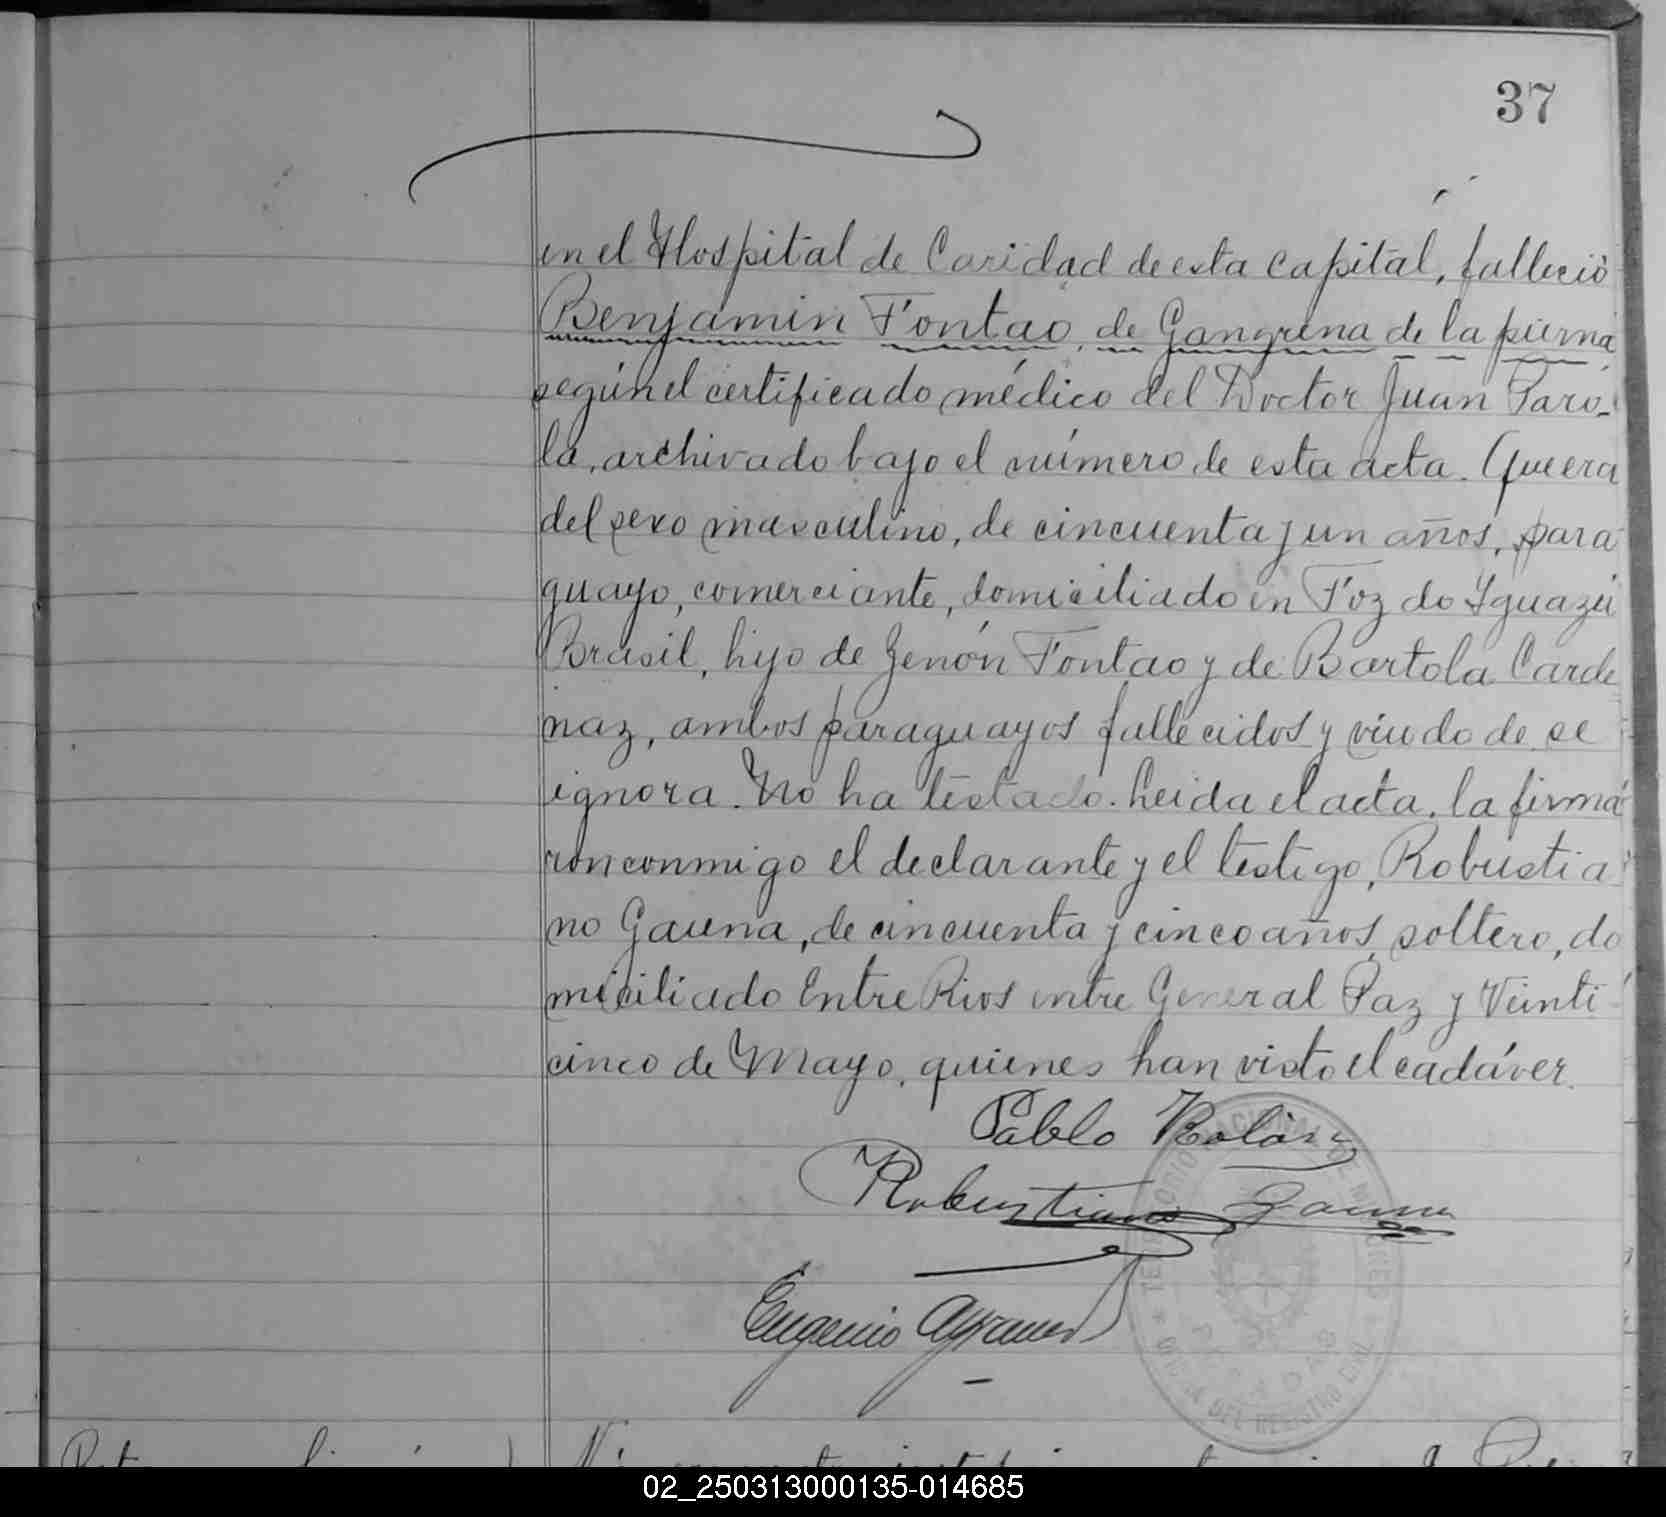 37
en el Hospital de Caridad de esta capital, falleció
Benjamin Fontao, de Gangrena de la pierna
según el certificado médico del Doctor Juan Paro-
la, archivado bajo el número de esta acta. Que era
del sexo masculino, de cincuenta y un años, para
guayo, comerciante, domiciliado en Foz do Yguazú
Brasil, hijo de Zenón Fontao y de Bartola Carde
naz, ambos paraguayos fallecidos y viudo de se
ignora. No ha testado. Leida el acta, la firma
ron conmigo el declarante y el testigo, Robustia
no Gauna, de cincuenta y cinco años, soltero, do
miciliado Entre Rios entre General Paz y Veinti
cinco de Mayo, quienes han visto el cadáver.
Pablo Rolón
Robustiano Gauna
Eugenio
TERRITORIO NACIONAL DE MISIONES
POSADAS
OFICINA DEL REGISTRO CIVIL
02_250313000135-014685